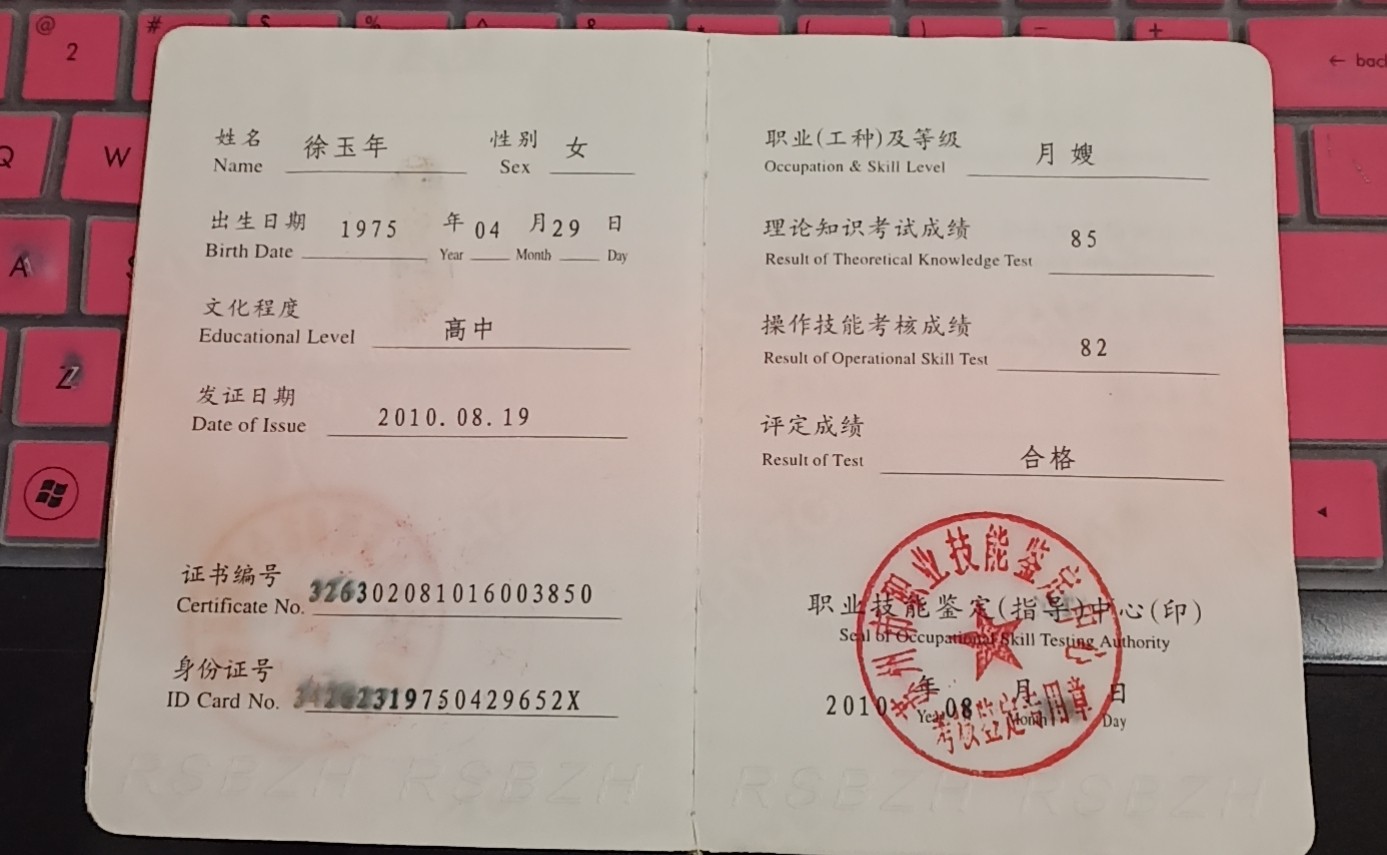 姓名 徐玉年 性别 女
Name Sex
出生日期 1975 年 04 月 29 日
Birth Date Year Month Day
文化程度 高中
Educational Level
发证日期 2010.08.19
Date of Issue
证书编号 3263020810160038​50
Certificate No.
身份证号
ID Card No. 19750429652X
职业(工种)及等级 月嫂
Occupation & Skill Level
理论知识考试成绩 85
Result of Theoretical Knowledge Test
操作技能考核成绩 82
Result of Operational Skill Test
评定成绩 合格
Result of Test
职业技能鉴定(指导)中心(印)
Seal of Occupational Skill Testing Authority
2010 年 08 月 日
Year Month Day
州市职业技能鉴定中心
考核鉴定专用章
RSBZH RSBZH RSBZH RSBZH
@ 2 # $ % ^ & * ( ) - +
← back
Q W
A S
Z